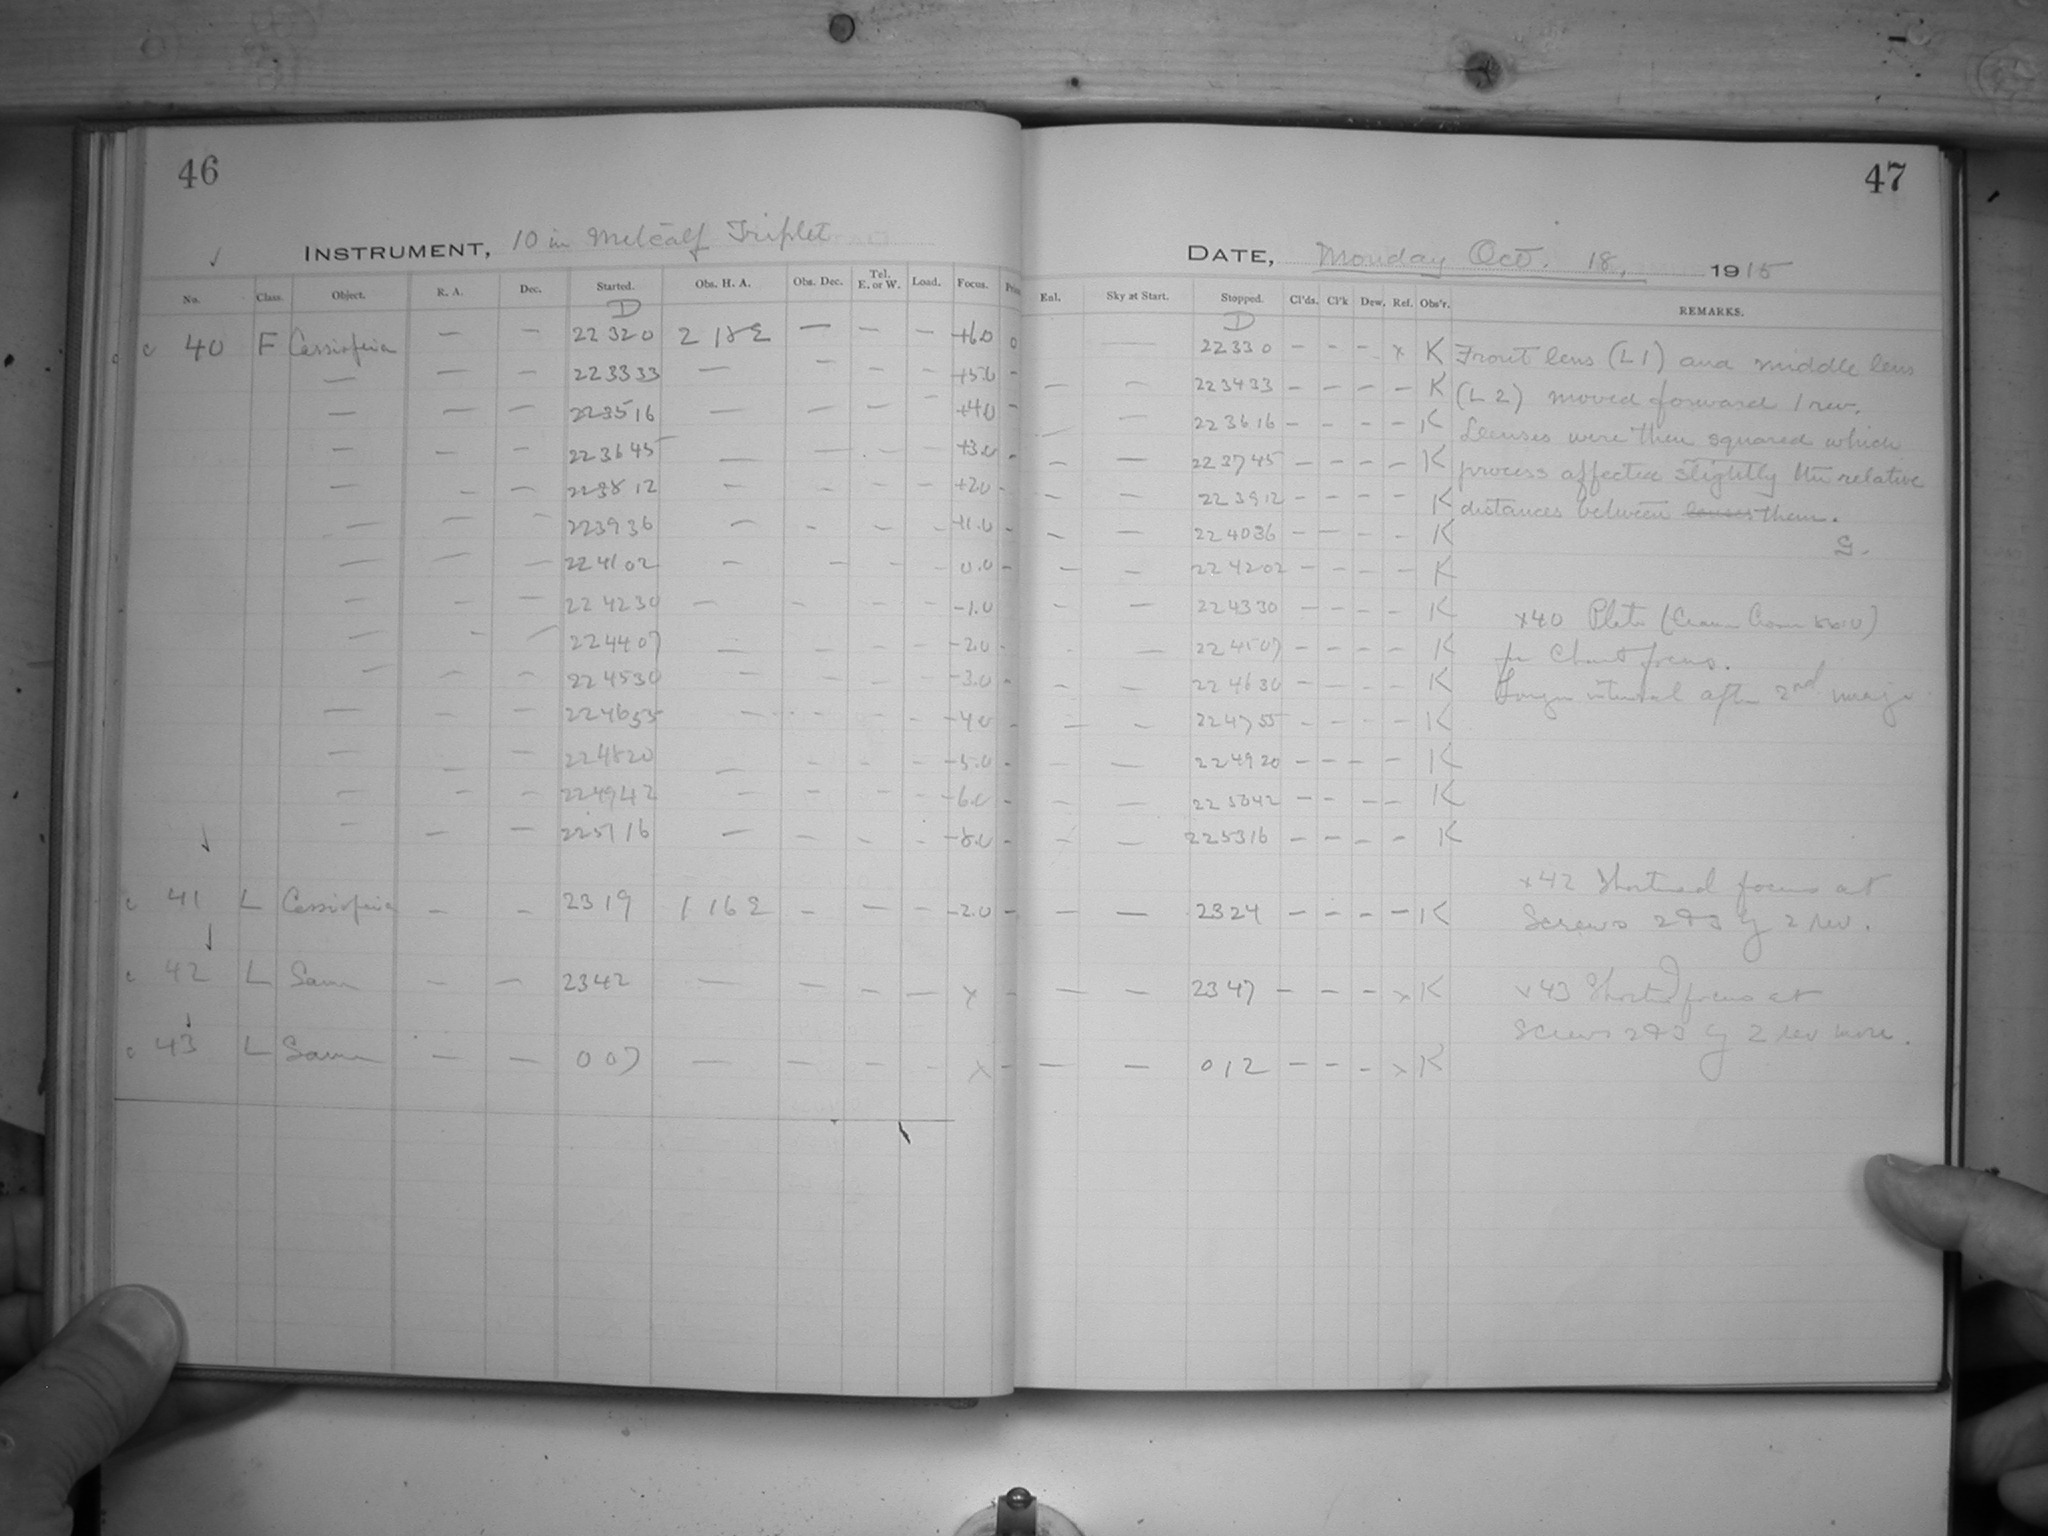 46
47
INSTRUMENT, 10 in Metcalf Triplet
DATE, Monday Oct. 18, 1915
No. Class. Object. R. A. Dec. Started. Obs. H. A. Obs. Dec. Tel. E. or W. Load. Focus. Enl. Sky at Start. Stopped. Cl'ds. Cl'k Dew. Ref. Obs'r. REMARKS.
D D
c 40 F Cassiopeia — — 22 32 0 2 18 E — — — +6.0 0 — 22 33 0 – – – x K Front lens (L1) and middle lens
— — — 22 33 33 — — — — +5.0 – — – 22 34 33 – – – – K (L2) moved forward 1 rev.
— — — 22 35 16 — — — — +4.0 – — 22 36 16 – – – – K Lenses were then squared which
— — — 22 36 45 — — – – +3.0 – – — 22 37 45 – – – – K process affected slightly the relative
— – — 22 38 12 – – – – +2.0 – – – 22 39 12 – – – – K distances between lenses them.
— — – 22 39 36 – – – – +1.0 – – — 22 40 36 – – – – K G.
— — — 22 41 02 – – – – 0.0 – – – 22 42 02 – – – – K
— – — 22 42 30 — – – – -1.0 – — 22 43 30 – – – – K x40 Plate
— – — 22 44 07 — – – – -2.0 – — 22 45 07 – – – – K for Chart focus.
— – – 22 45 30 – – – – -3.0 – – – 22 46 30 – – – – K Longer interval after 2nd image
— – – 22 46 55 – – – – -4.0 – — – 22 47 55 – – – – K
— – – 22 48 20 — – – – -5.0 – – — 22 49 20 – – – – K
— – – 22 49 42 – – – – -6.0 – – — 22 50 42 – – – – K
— – — 22 51 16 — – – – -8.0 – – – 22 53 16 – – – – K
c 41 L Cassiopeia – – 23 19 1 16 E – — – -2.0 – – — 23 24 – – – – K x42 Shortened focus at
Screws 2 & 3 by 2 rev.
c 42 L Same – – 23 42 — – – — x – — – 23 47 – – – x K x43 Shorter focus at
Screws 2 & 3 by 2 rev more.
c 43 L Same — — 0 07 — – – – x – — – 0 12 – – – x K